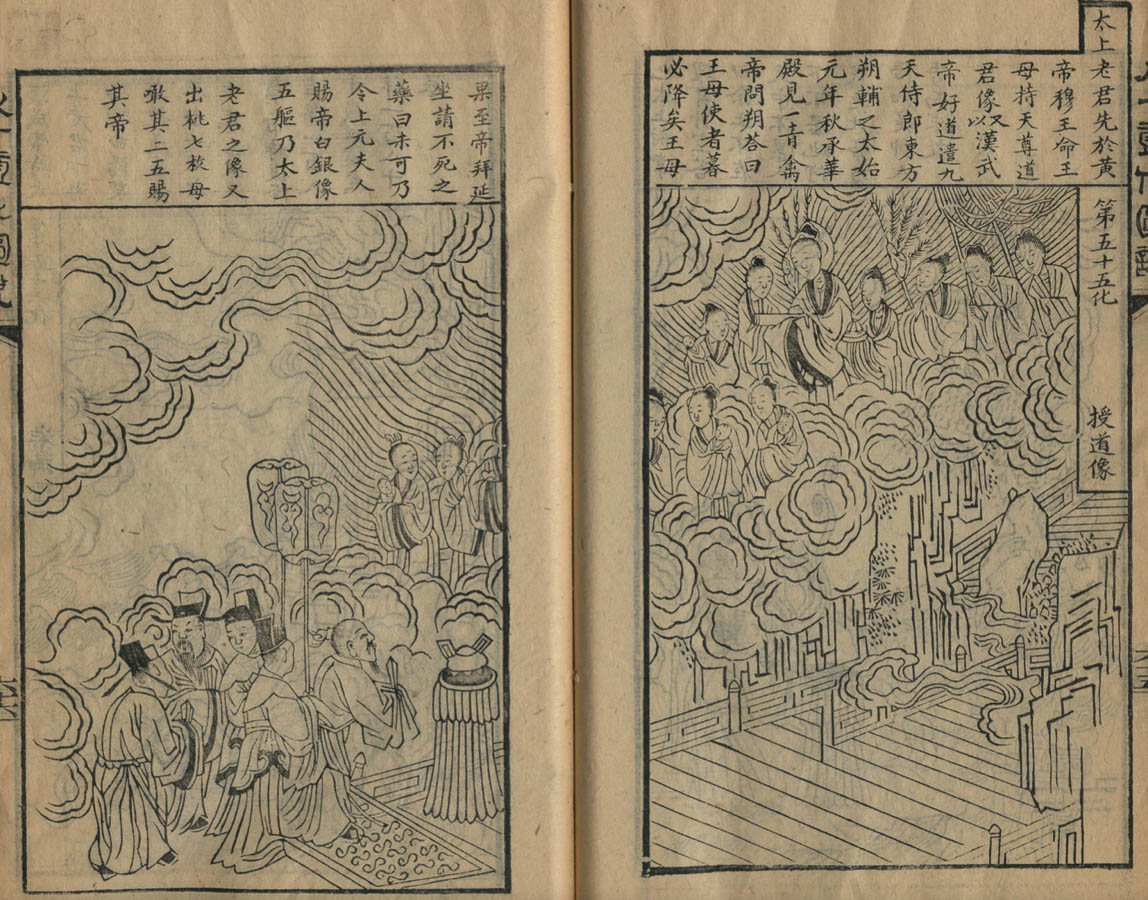 第五十五化
授道像
太上老君先於黃
帝穆王命王
母持天尊道
君像又以漢武
帝好道遣九
天侍郎東方
朔輔之太始
元年秋承華
殿見一青禽
帝問朔荅曰
王母使者暮
必降矣王母
果至帝拜延
坐請不死之
藥曰未可乃
令上元夫人
賜帝白銀像
五軀乃太上
老君之像又
出桃七枚母
噉其二五賜
其帝